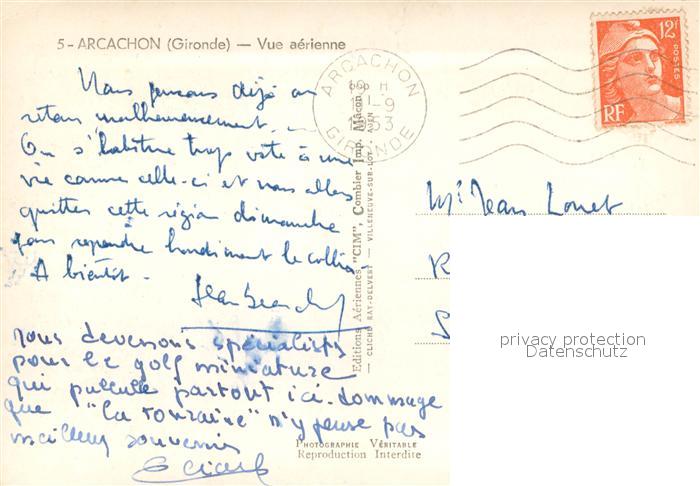 5 - ARCACHON (Gironde) — Vue aérienne
Nous pensons déjà au
retour malheureusement.
On s'habitue trop vite à une
vie comme celle-ci et nous allons
quitter cette région dimanche
pour reprendre hardiment le collier.
A bientôt -
nous devenons spécialistes
pour le golf miniature
qui pullule partout ici. dommage
que "la Touraine" n'y pense pas
meilleurs souvenirs
ARCACHON
GIRONDE
12F
POSTES
RF
Editions Aériennes "CIM", Combier Imp. Mâcon
— CLICHÉ RAY-DELVERT — VILLENEUVE-SUR-LOT, AGEN
Mr Jean Louet
R
S
privacy protection
Datenschutz
PHOTOGRAPHIE VÉRITABLE
Reproduction Interdite